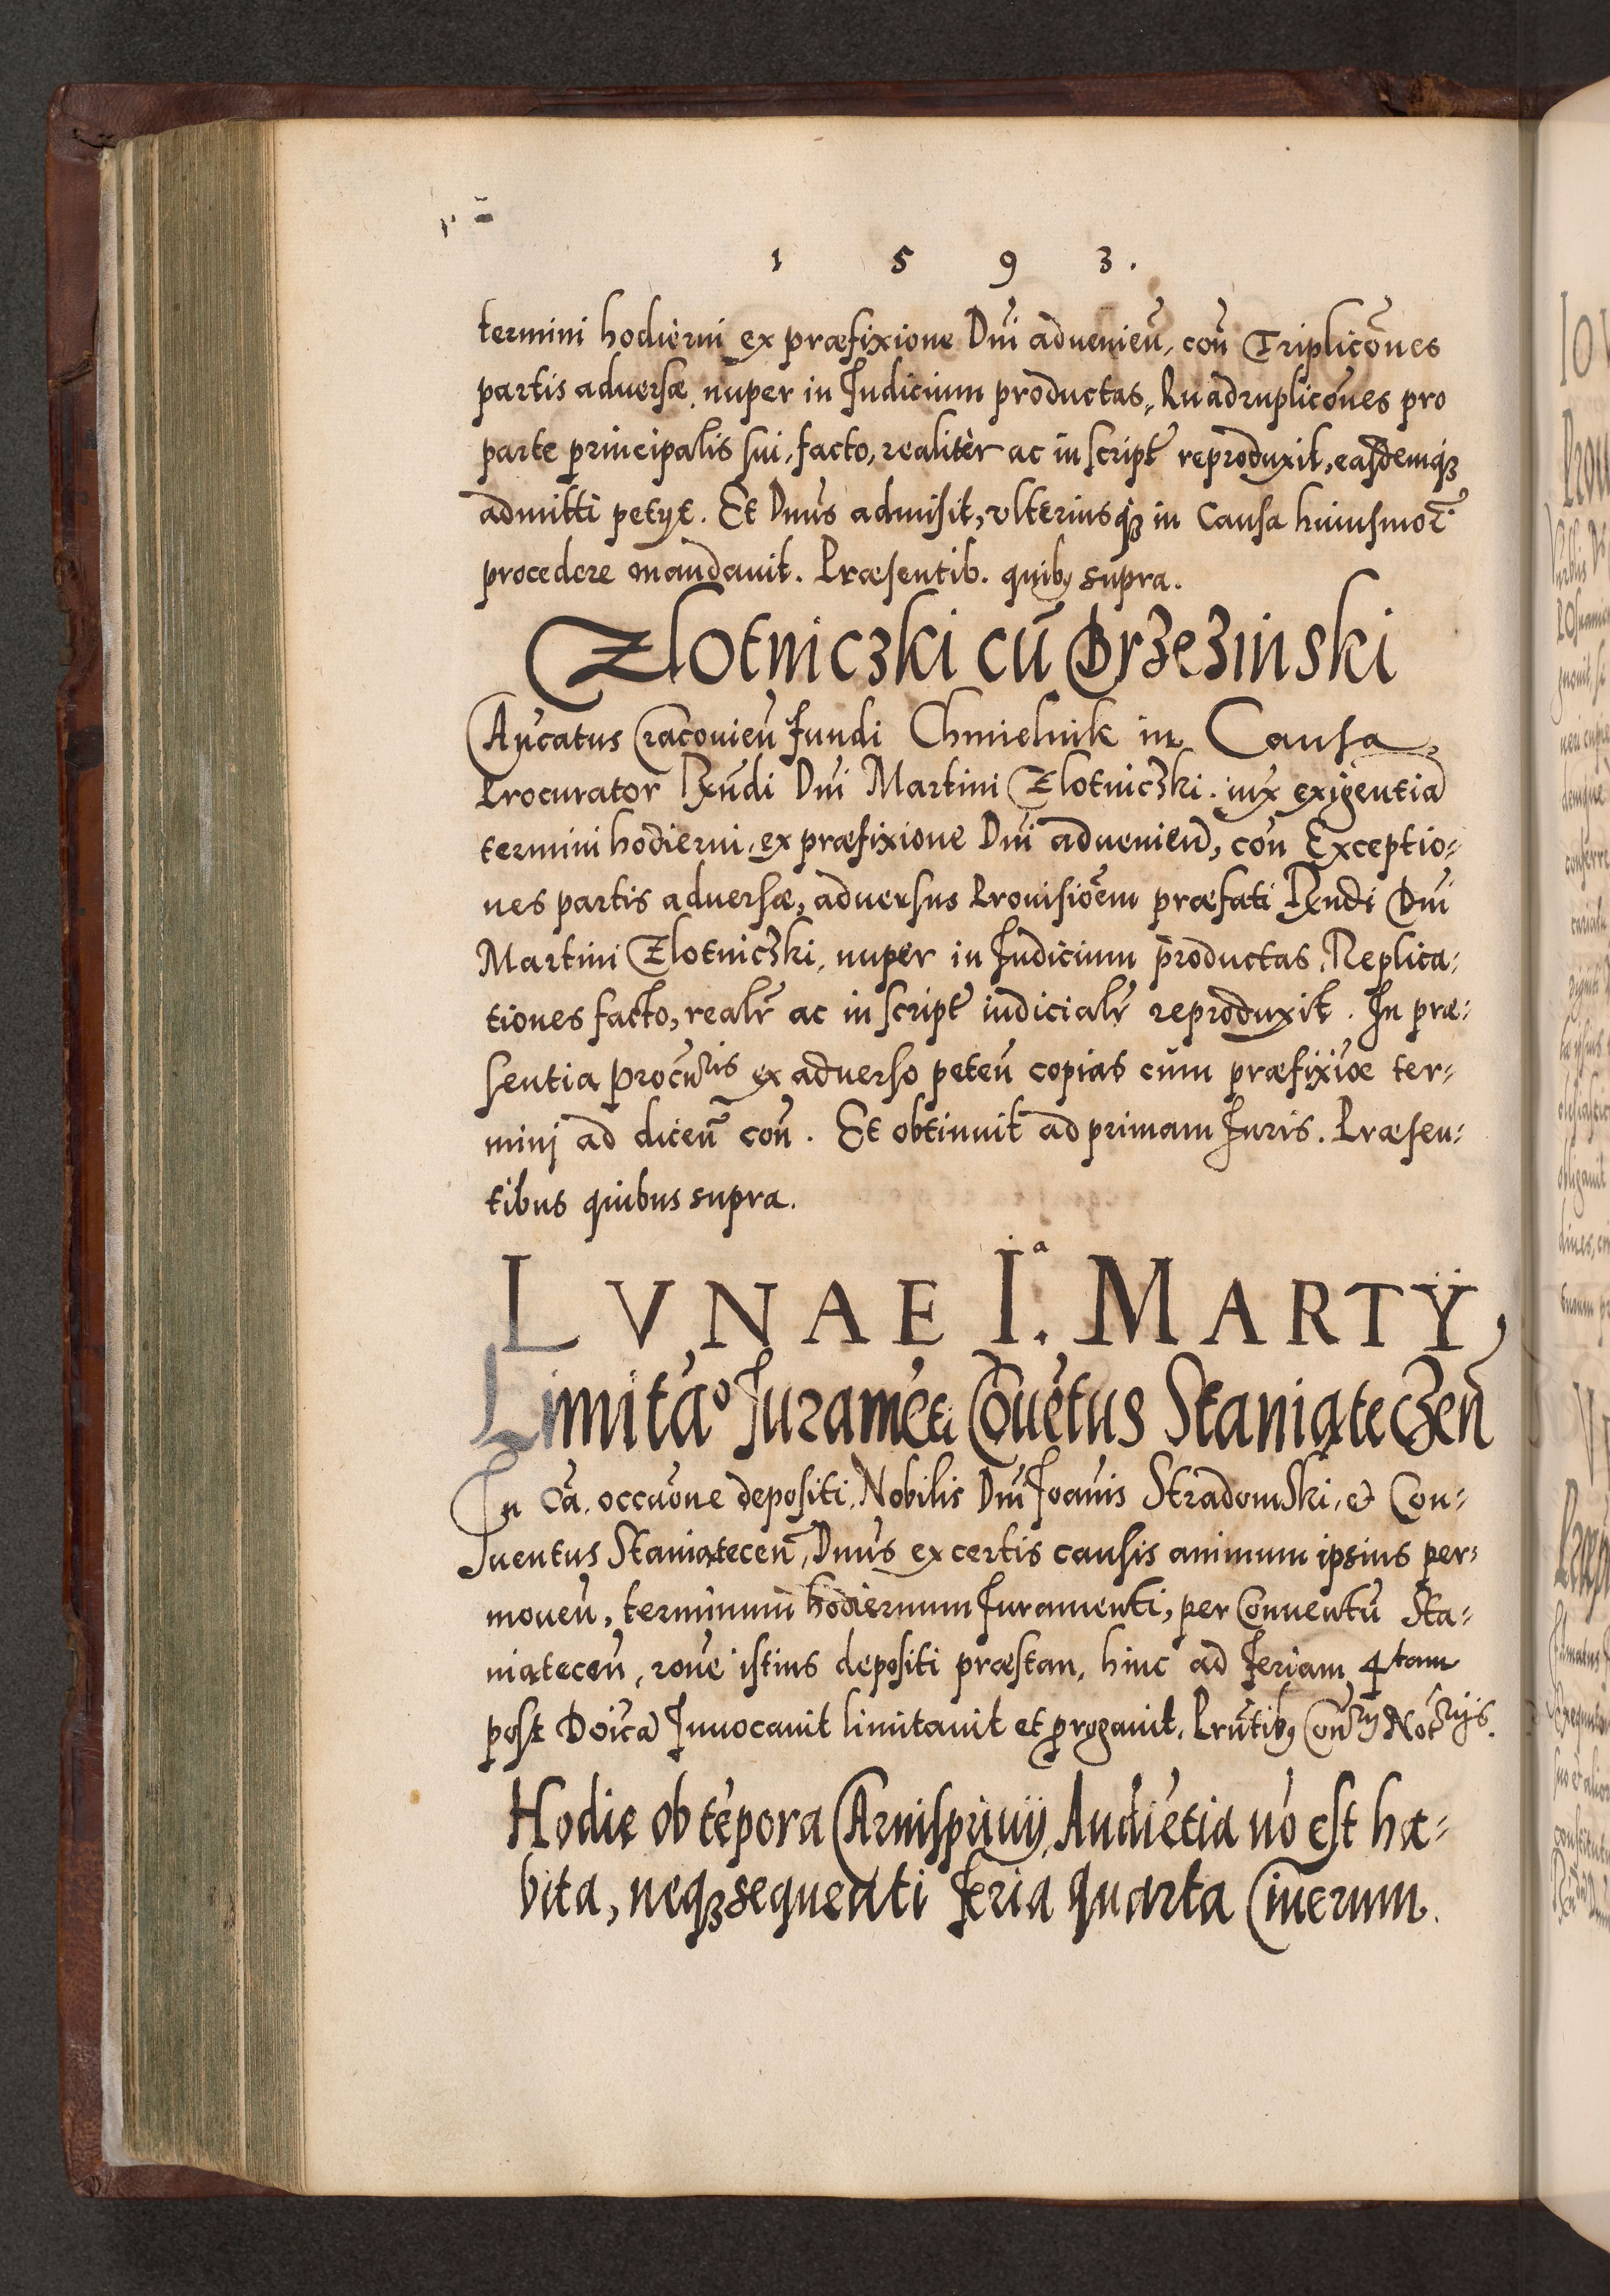 1 5 9 3.
termini hodierni ex præfixione Dñi aduenieñ, coñ Triplicões
partis aduersæ, nuper in Iudicium productas, Quadruplicões pro
parte principalis sui, facto, realiter ac in script̃ reproduxit, easdemqȝ
admitti petyt. Et Dñus admisit, vlteriusqȝ in Causa huiusmoɾ̃
procedere mandauit. Præsentib. quibꝰ supra.
Zlotniczki cũ Brzezinski
Cañcatus Cracouieñ fundi Chmielnik in Causa,
Procurator Rx̃ndi Dñi Martini Zlotniczki iux̃ exigentiã
termini hodierni, ex præfixione Dñi aduenieñ, coñ Exceptio-
nes partis aduersæ, aduersus Prouisiõem præfati Rx̃ndi Dñi
Martini Zlotniczki, nuper in Iudicium productas, Replica-
tiones facto, realr̃ ac in script̃ iudicialr̃ reproduxit. In præ-
sentia procũris ex aduerso peteñ copias cum præfixiõe ter-
mini ad diceñ coñ. Et obtinuit ad primam Iuris. Præsen-
tibus quibus supra.
LVNAE I.ª MARTŸ,
Limitão Iuramẽti Cõuẽtus Staniąteczeñ
In Cã. occãone depositi, Nobilis Dñi Ioãnis Stradomski, et Con-
uentus Staniąteceñ, Dñus ex certis causis animum ipsius per-
moueñ, terminum hodiernum Iuramenti, per Conuentũ Sta-
niąteceñ, rõne istius depositi præstan, hinc ad feriam 4tam
post Doĩcã Inuocauit limitauit et prorogauit. Prñtibꝰ Coñrÿ Notrijs.
Hodie ob tẽpora Carnispriuij, Audiẽtia nõ est ha-
bita, neqȝ sequenti feria quarta Cinerum.